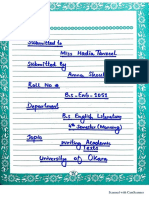 Submitted to
Miss Hadia Tanveel
Submitted by
Amna
Roll No #
B.s-Eng-2051
Department
B.s English Literature
6th Semester (Morning)
Topic
writing Academic
Texts
University of Okara
Scanned with CamScanner